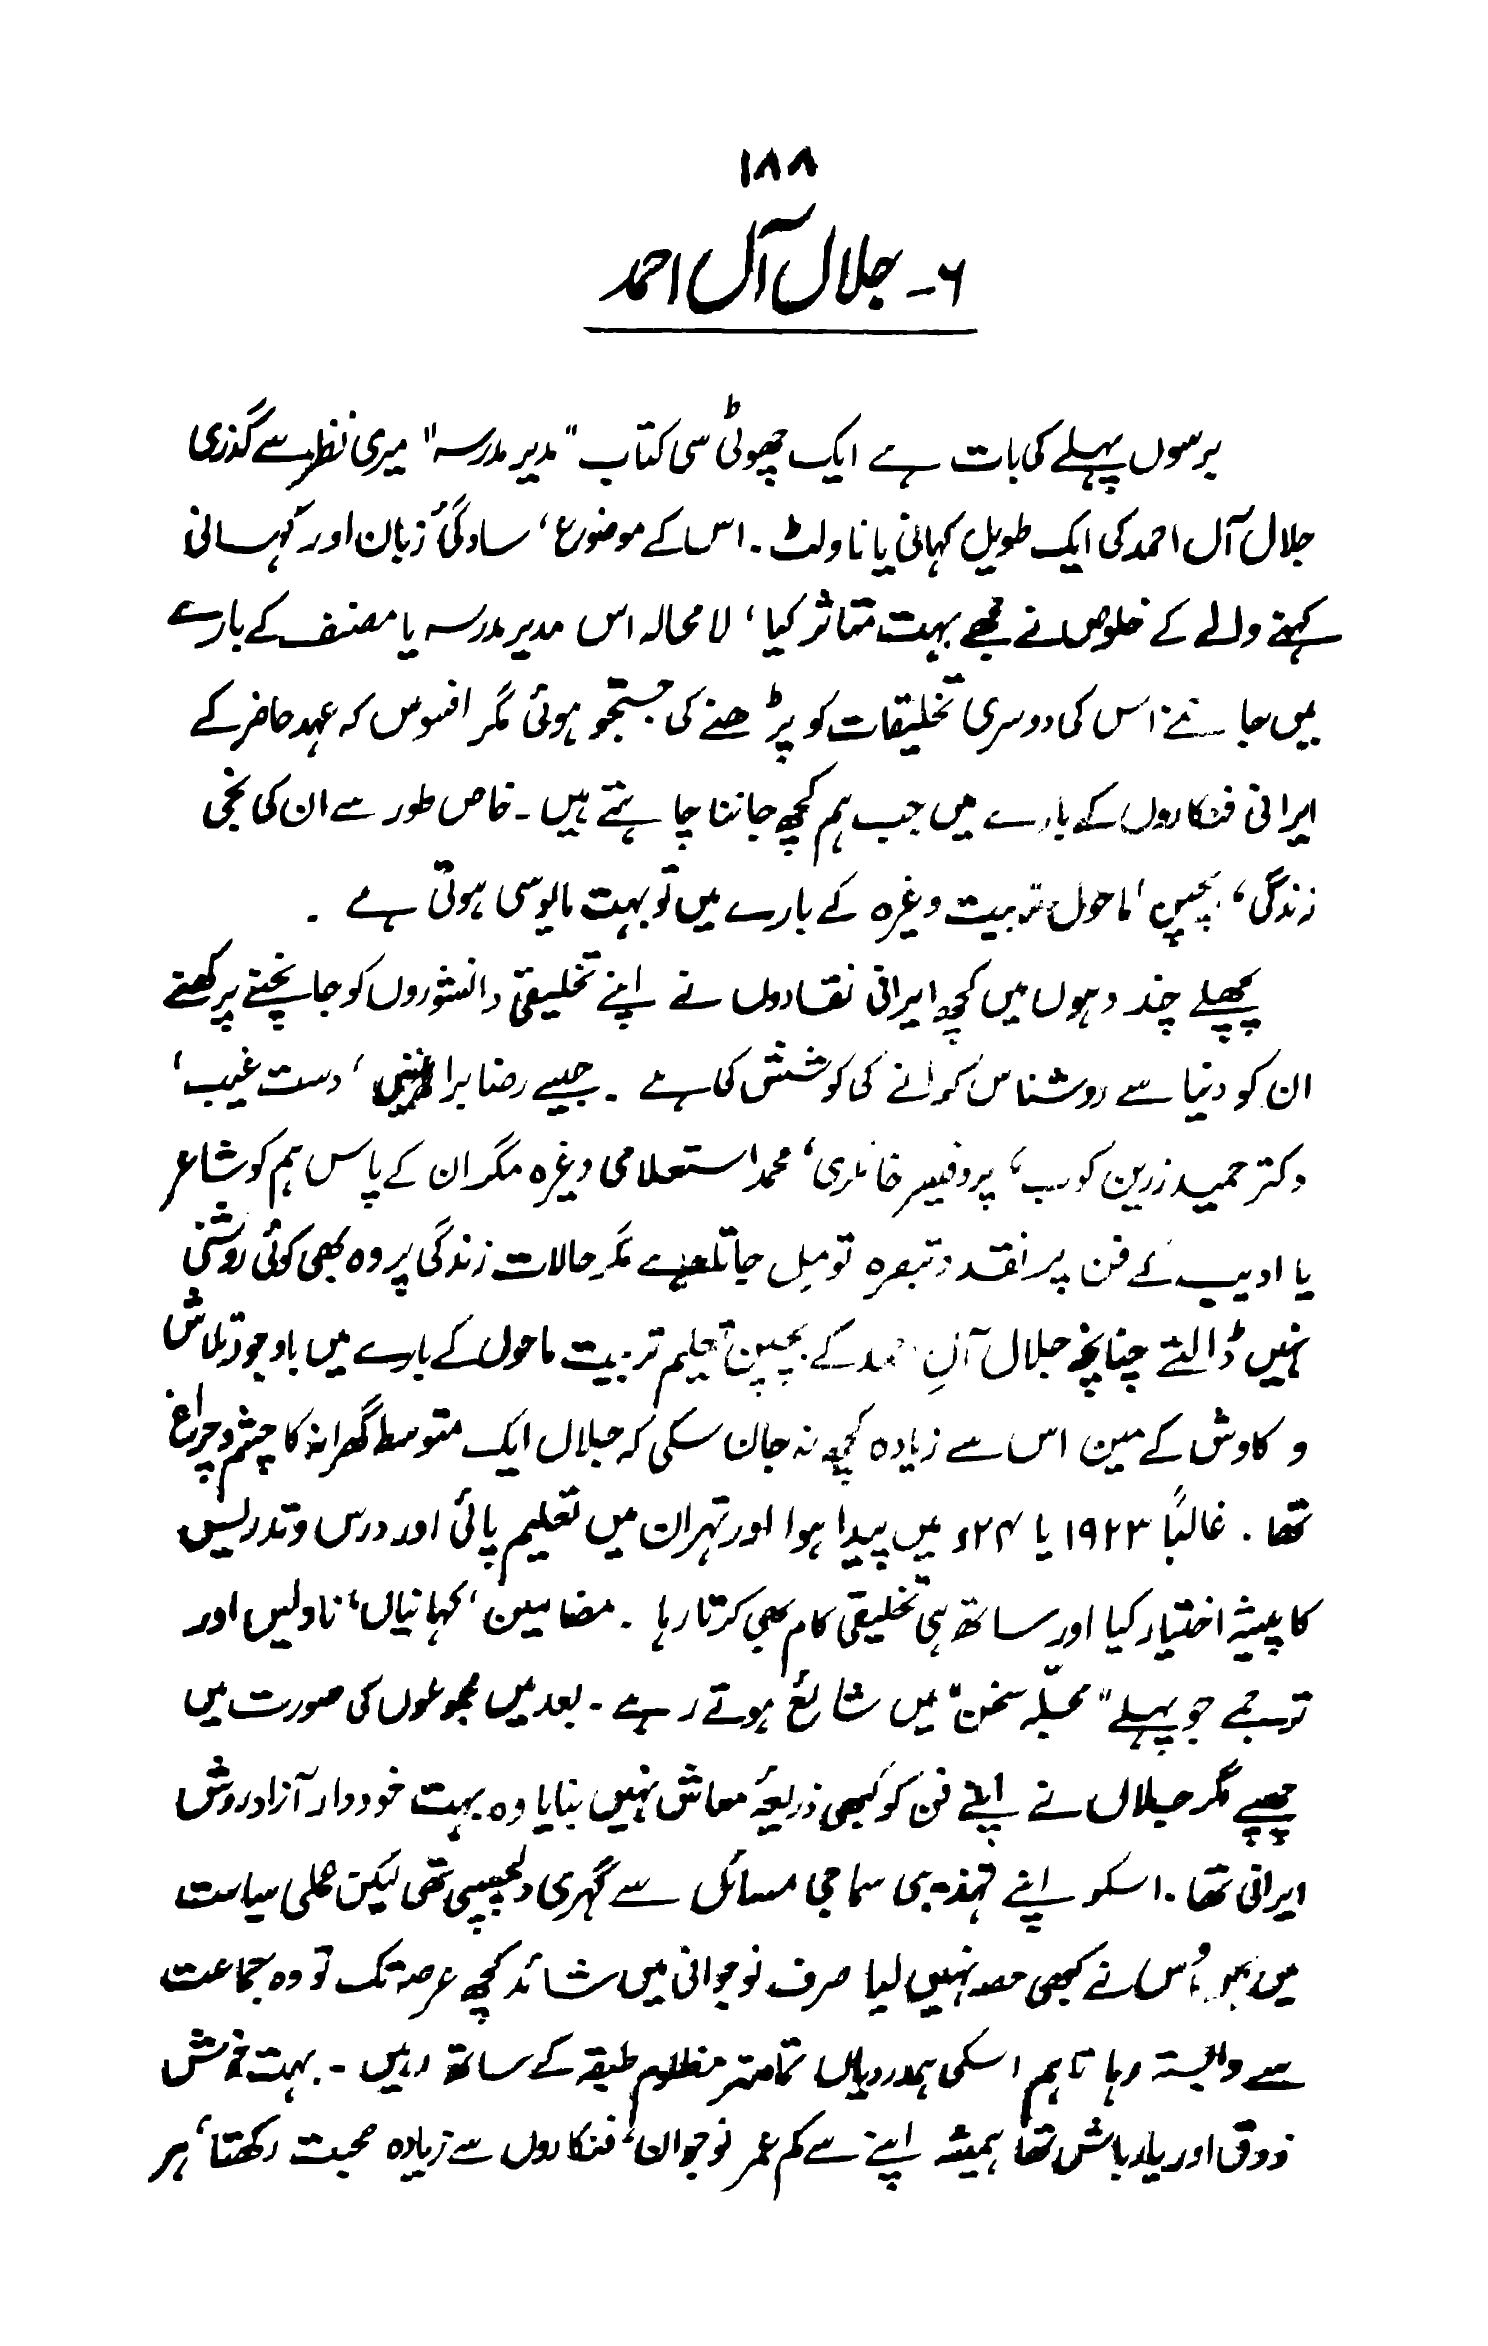 ۱۸۸
۶۔ جلال آل احمد
برسوں پہلے کی بات ہے ایک چھوٹی سی کتاب "مدیر مدرسہ" میری نظر سے گذری
جلال آل احمد کی ایک طویل کہانی یا ناولٹ ۔ اس کے موضوع، سادگیٔ زبان اور کہانی
کہنے والے کے خلوص نے مجھے بہت متاثر کیا، لا محالہ اس مدیر مدرسہ یا مصنف کے بارے
میں جاننے اس کی دوسری تخلیقات کو پڑھنے کی جستجو ہوئی مگر افسوس کہ عہد حاضر کے
ایرانی فنکاروں کے بارے میں جب ہم کچھ جاننا چاہتے ہیں ۔ خاص طور سے ان کی نجی
زندگی، بچپن، ماحول، تربیت وغیرہ کے بارے میں تو بہت مایوسی ہوتی ہے ۔
پچھلے چند دہوں میں کچھ ایرانی نقادوں نے اپنے تخلیقی دانشوروں کو جانچنے پرکھنے
ان کو دنیا سے روشناس کرانے کی کوشش کی ہے ۔ جیسے رضا براہنی، دست غیب،
دکتر حمید زرین کوب، پروفیسر خانلری، محمد استعلامی وغیرہ مگر ان کے پاس ہم کو شاعر
یا ادیب کے فن پر نقد و تبصرہ تو مل جاتا ہے مگر حالات زندگی پر وہ بھی کوئی روشنی
نہیں ڈالتے چنانچہ جلال آلِ احمد کے بچپن تعلیم تربیت ماحول کے بارے میں باوجود تلاش
و کاوش کے مین اس سے زیادہ کچھ نہ جان سکی کہ جلال ایک متوسط گھرانہ کا چشم و چراغ
تھا ۔ غالباً ۱۹۲۳ یا ۲۴ء میں پیدا ہوا اور تہران میں تعلیم پائی اور درس و تدریس
کا پیشہ اختیار کیا اور ساتھ ہی تخلیقی کام بھی کرتا رہا ۔ مضامین، کہانیاں، ناولیں اور
ترجمے جو پہلے "مجلّہ سخن" میں شائع ہوتے رہے ۔ بعد میں مجموعوں کی صورت میں
چھپے مگر جلال نے اپنے فن کو کبھی ذریعۂ معاش نہیں بنایا وہ بہت خوددار آزاد روش
ایرانی تھا ۔ اسکو اپنے تہذیبی سماجی مسائل سے گہری دلچسپی تھی لیکن عملی سیاست
میں بھی اُس نے کبھی حصہ نہیں لیا صرف نوجوانی میں شائد کچھ عرصہ تک تو وہ جماعت
سے وابستہ رہا تاہم اسکی ہمدردیاں تمامتر مظلوم طبقہ کے ساتھ رہیں ۔ بہت خوش
ذوق اور یار باش تھا ہمیشہ اپنے سے کم عمر نوجوان، فنکاروں سے زیادہ محبت رکھتا، ہر